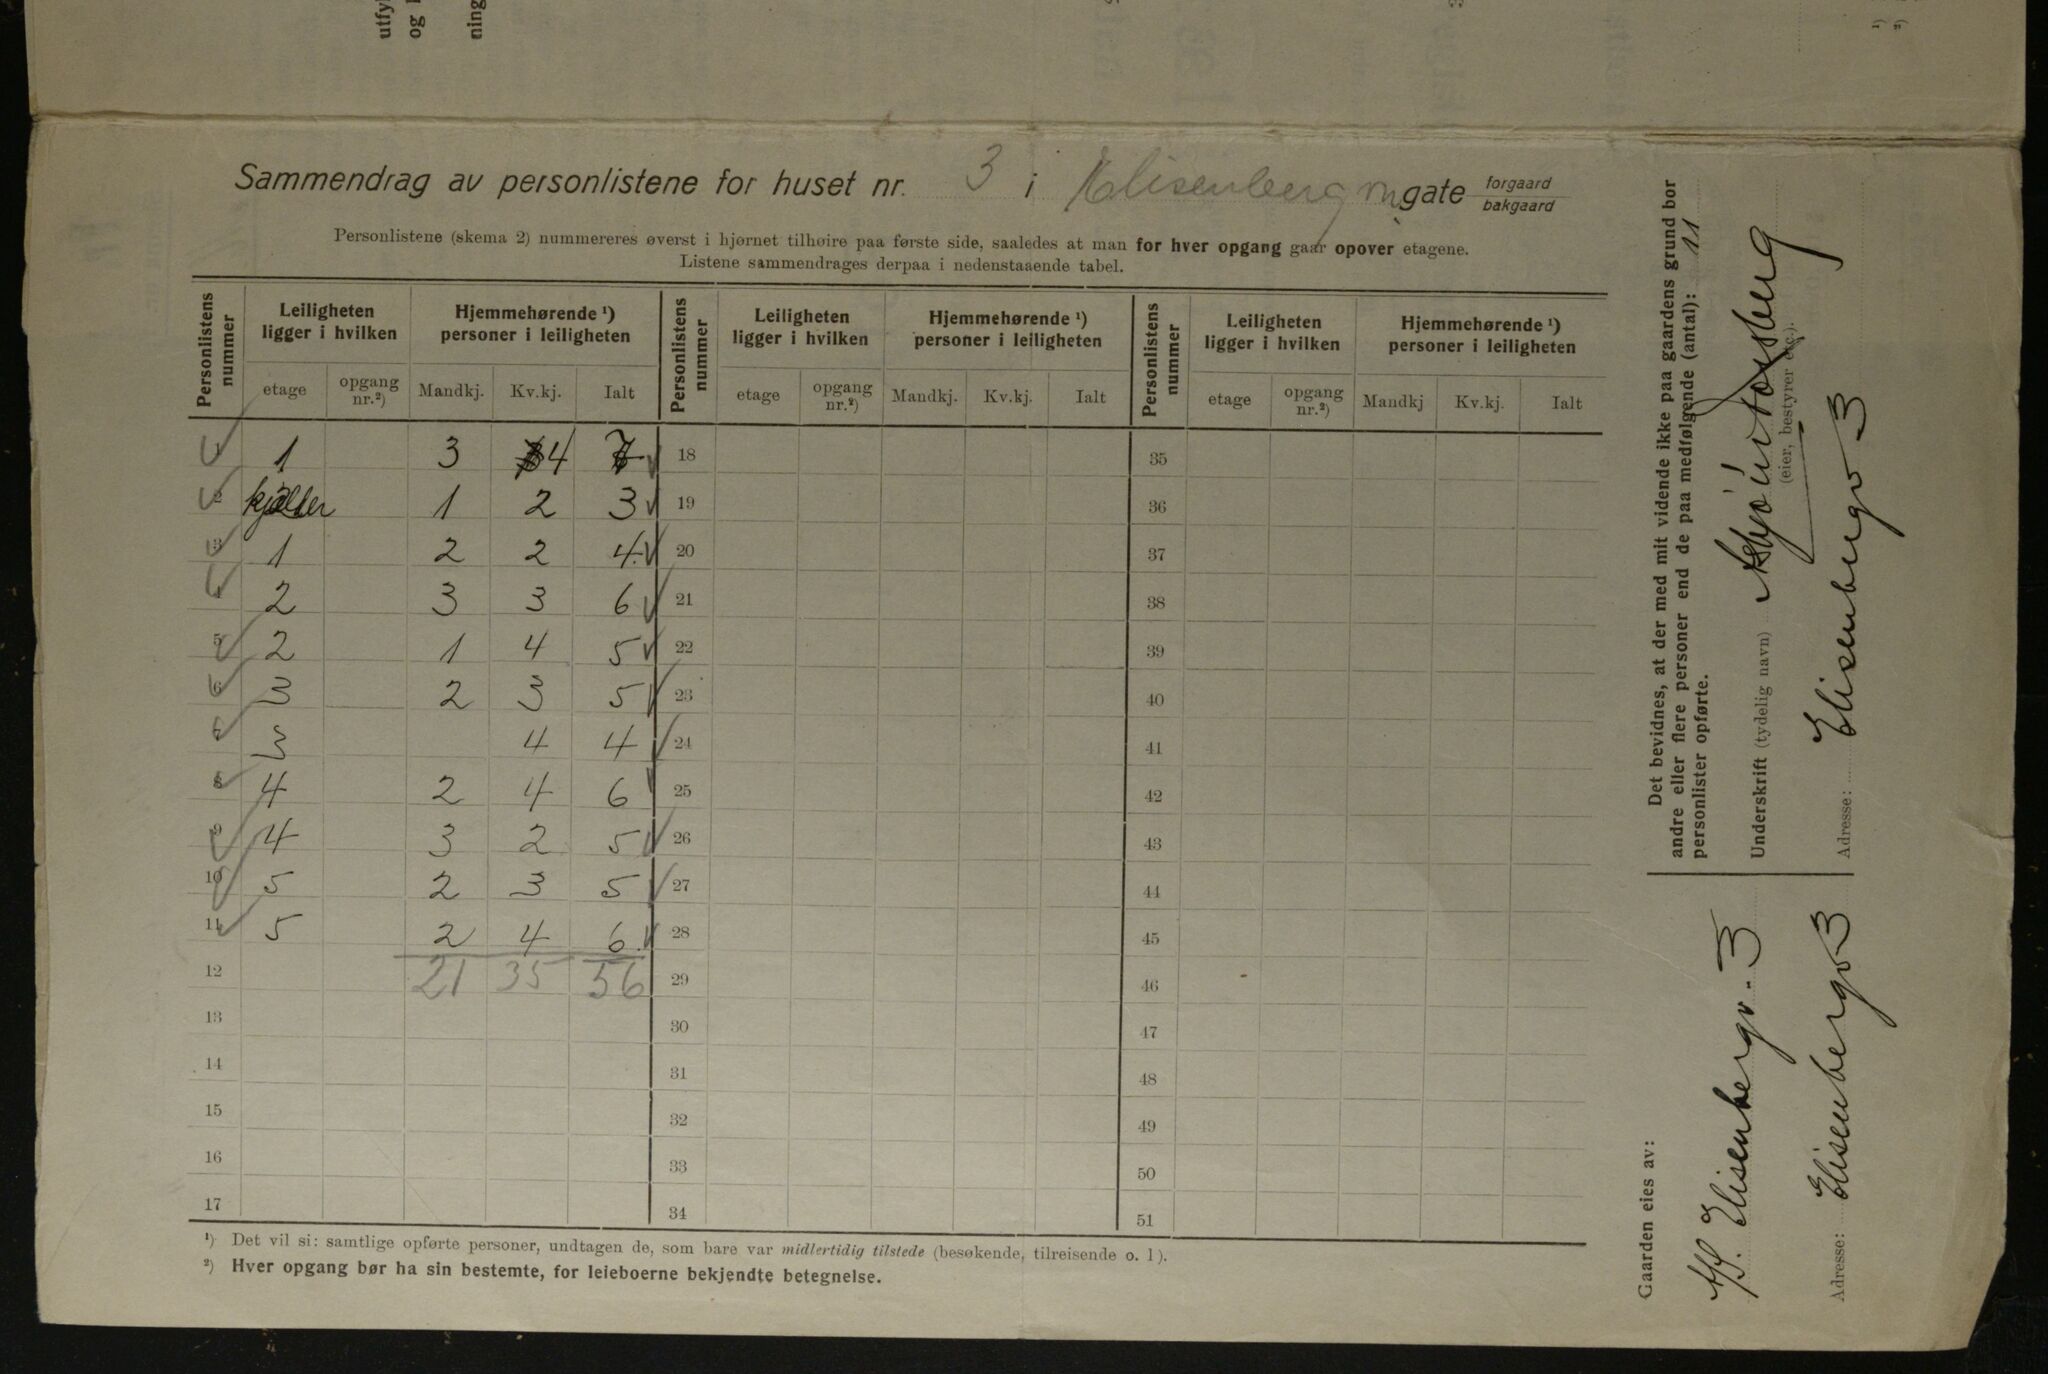 Sammendrag av personlistene for huset nr. 3 i Elisenbergvn gate forgaard bakgaard
Personlistene (skema 2) nummereres øverst i hjørnet tilhøire paa første side, saaledes at man for hver opgang gaar opover etagene.
Listene sammendrages derpaa i nedenstaaende tabel.
Personlistens nummer Leiligheten ligger i hvilken Hjemmehørende ¹) personer i leiligheten Personlistens nummer Leiligheten ligger i hvilken Hjemmehørende ¹) personer i leiligheten Personlistens nummer Leiligheten ligger i hvilken Hjemmehørende ¹) personer i leiligheten
etage opgang nr.²) Mandkj. Kv.kj. Ialt etage opgang nr.²) Mandkj. Kv.kj. Ialt etage opgang nr.²) Mandkj Kv.kj. Ialt
1 1 3 4 7 18 35
2 kjelder 1 2 3 19 36
3 1 2 2 4 20 37
4 2 3 3 6 21 38
5 2 1 4 5 22 39
6 3 2 3 5 23 40
7 3 4 4 24 41
8 4 2 4 6 25 42
9 4 3 2 5 26 43
10 5 2 3 5 27 44
11 5 2 4 6 28 45
12 21 35 56 29 46
13 30 47
14 31 48
15 32 49
16 33 50
17 34 51
¹) Det vil si: samtlige opførte personer, undtagen de, som bare var midlertidig tilstede (besøkende, tilreisende o. l).
²) Hver opgang bør ha sin bestemte, for leieboerne bekjendte betegnelse.
Det bevidnes, at der med mit vidende ikke paa gaardens grund bor
andre eller flere personer end de paa medfølgende (antal): 11
personlister opførte.
Underskrift (tydelig navn)
(eier, bestyrer etc.).
Adresse: Elisenbergv 3
Gaarden eies av:
A/S. Elisenbergv. 3
Adresse: Elisenbergv 3
utfyl
og
ning
¹)
²)